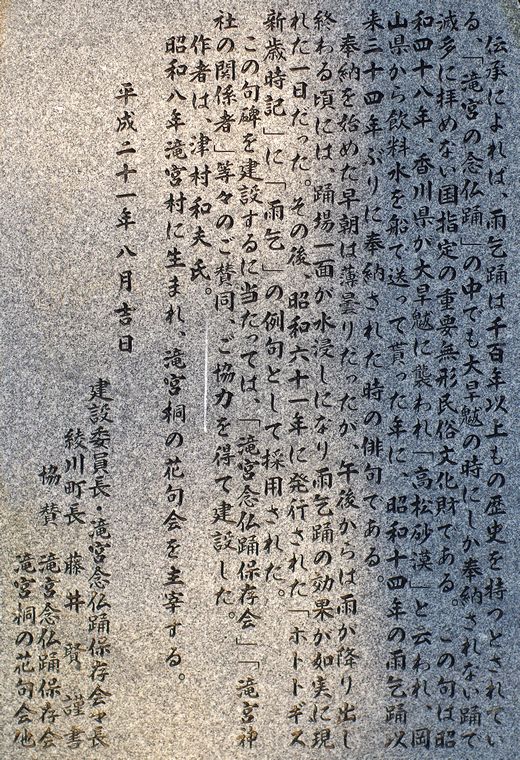 伝承によれば、雨乞踊は千百年以上もの歴史を持つとされてい
る、「滝宮の念仏踊」の中でも大旱魃の時にしか奉納されない踊で
滅多に拝めない国指定の重要無形民俗文化財である。　この句は昭
和四十八年、香川県が大旱魃に襲われ「高松砂漠」と云われ、岡
山県から飲料水を船で送って貰った年に、昭和十四年の雨乞踊以
来三十四年ぶりに奉納された時の俳句である。
奉納を始めた早朝は薄曇りだったが、午後からは雨が降り出し
終わる頃には、踊場一面が水浸しになり雨乞踊の効果が如実に現
れた一日だった。その後、昭和六十一年に発行された「ホトトギス
新歳時記」に「雨乞」の例句として採用された。
この句碑を建設するに当たっては、「滝宮念仏踊保存会」「滝宮神
社の関係者」等々のご賛同、ご協力を得て建設した。
作者は、津村和夫氏。
昭和八年滝宮村に生まれ、滝宮桐の花句会を主宰する。
平成二十一年八月吉日
建設委員長・滝宮念仏踊保存会々長
綾川町長　藤井　賢　謹書
協賛　滝宮念仏踊保存会
滝宮桐の花句会他